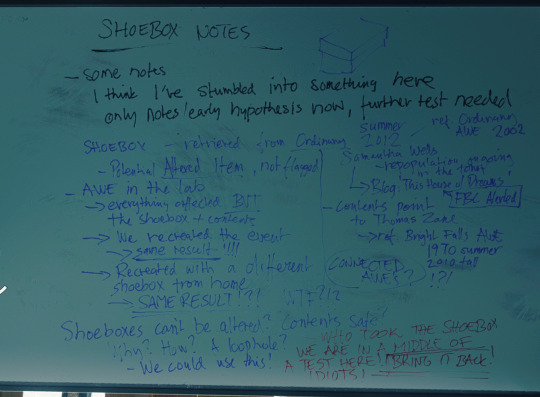 SHOEBOX NOTES
- some notes
I think I've stumbled into something here
only notes/early hypothesis now, further test needed
SHOEBOX - retrieved from Ordinary
- Potential Altered Item, not flagged
- AWE in the lab
→ everything affected BUT
the shoebox + contents
→ We recreated the event
→ same result!!!!
→ Recreated with a different
shoebox from home
→ SAME RESULT!?! WTF?!?
summer
2012
ref Ordinary
AWE 2002
Samantha Wells
- repopulation ongoing
in the town!
↳ Blog: This House of Dreams
FBC Alerted
- contents point
to Thomas Zane
→ ref. Bright Falls AWE
1970 summer
2010 fall
CONNECTED
AWEs? !?!
Shoeboxes can't be altered? Contents safe?
Why? How? A loophole?
- We could use this!
WHO TOOK THE SHOEBOX
WE ARE IN A MIDDLE OF
A TEST HERE! BRING IT BACK!
IDIOTS!